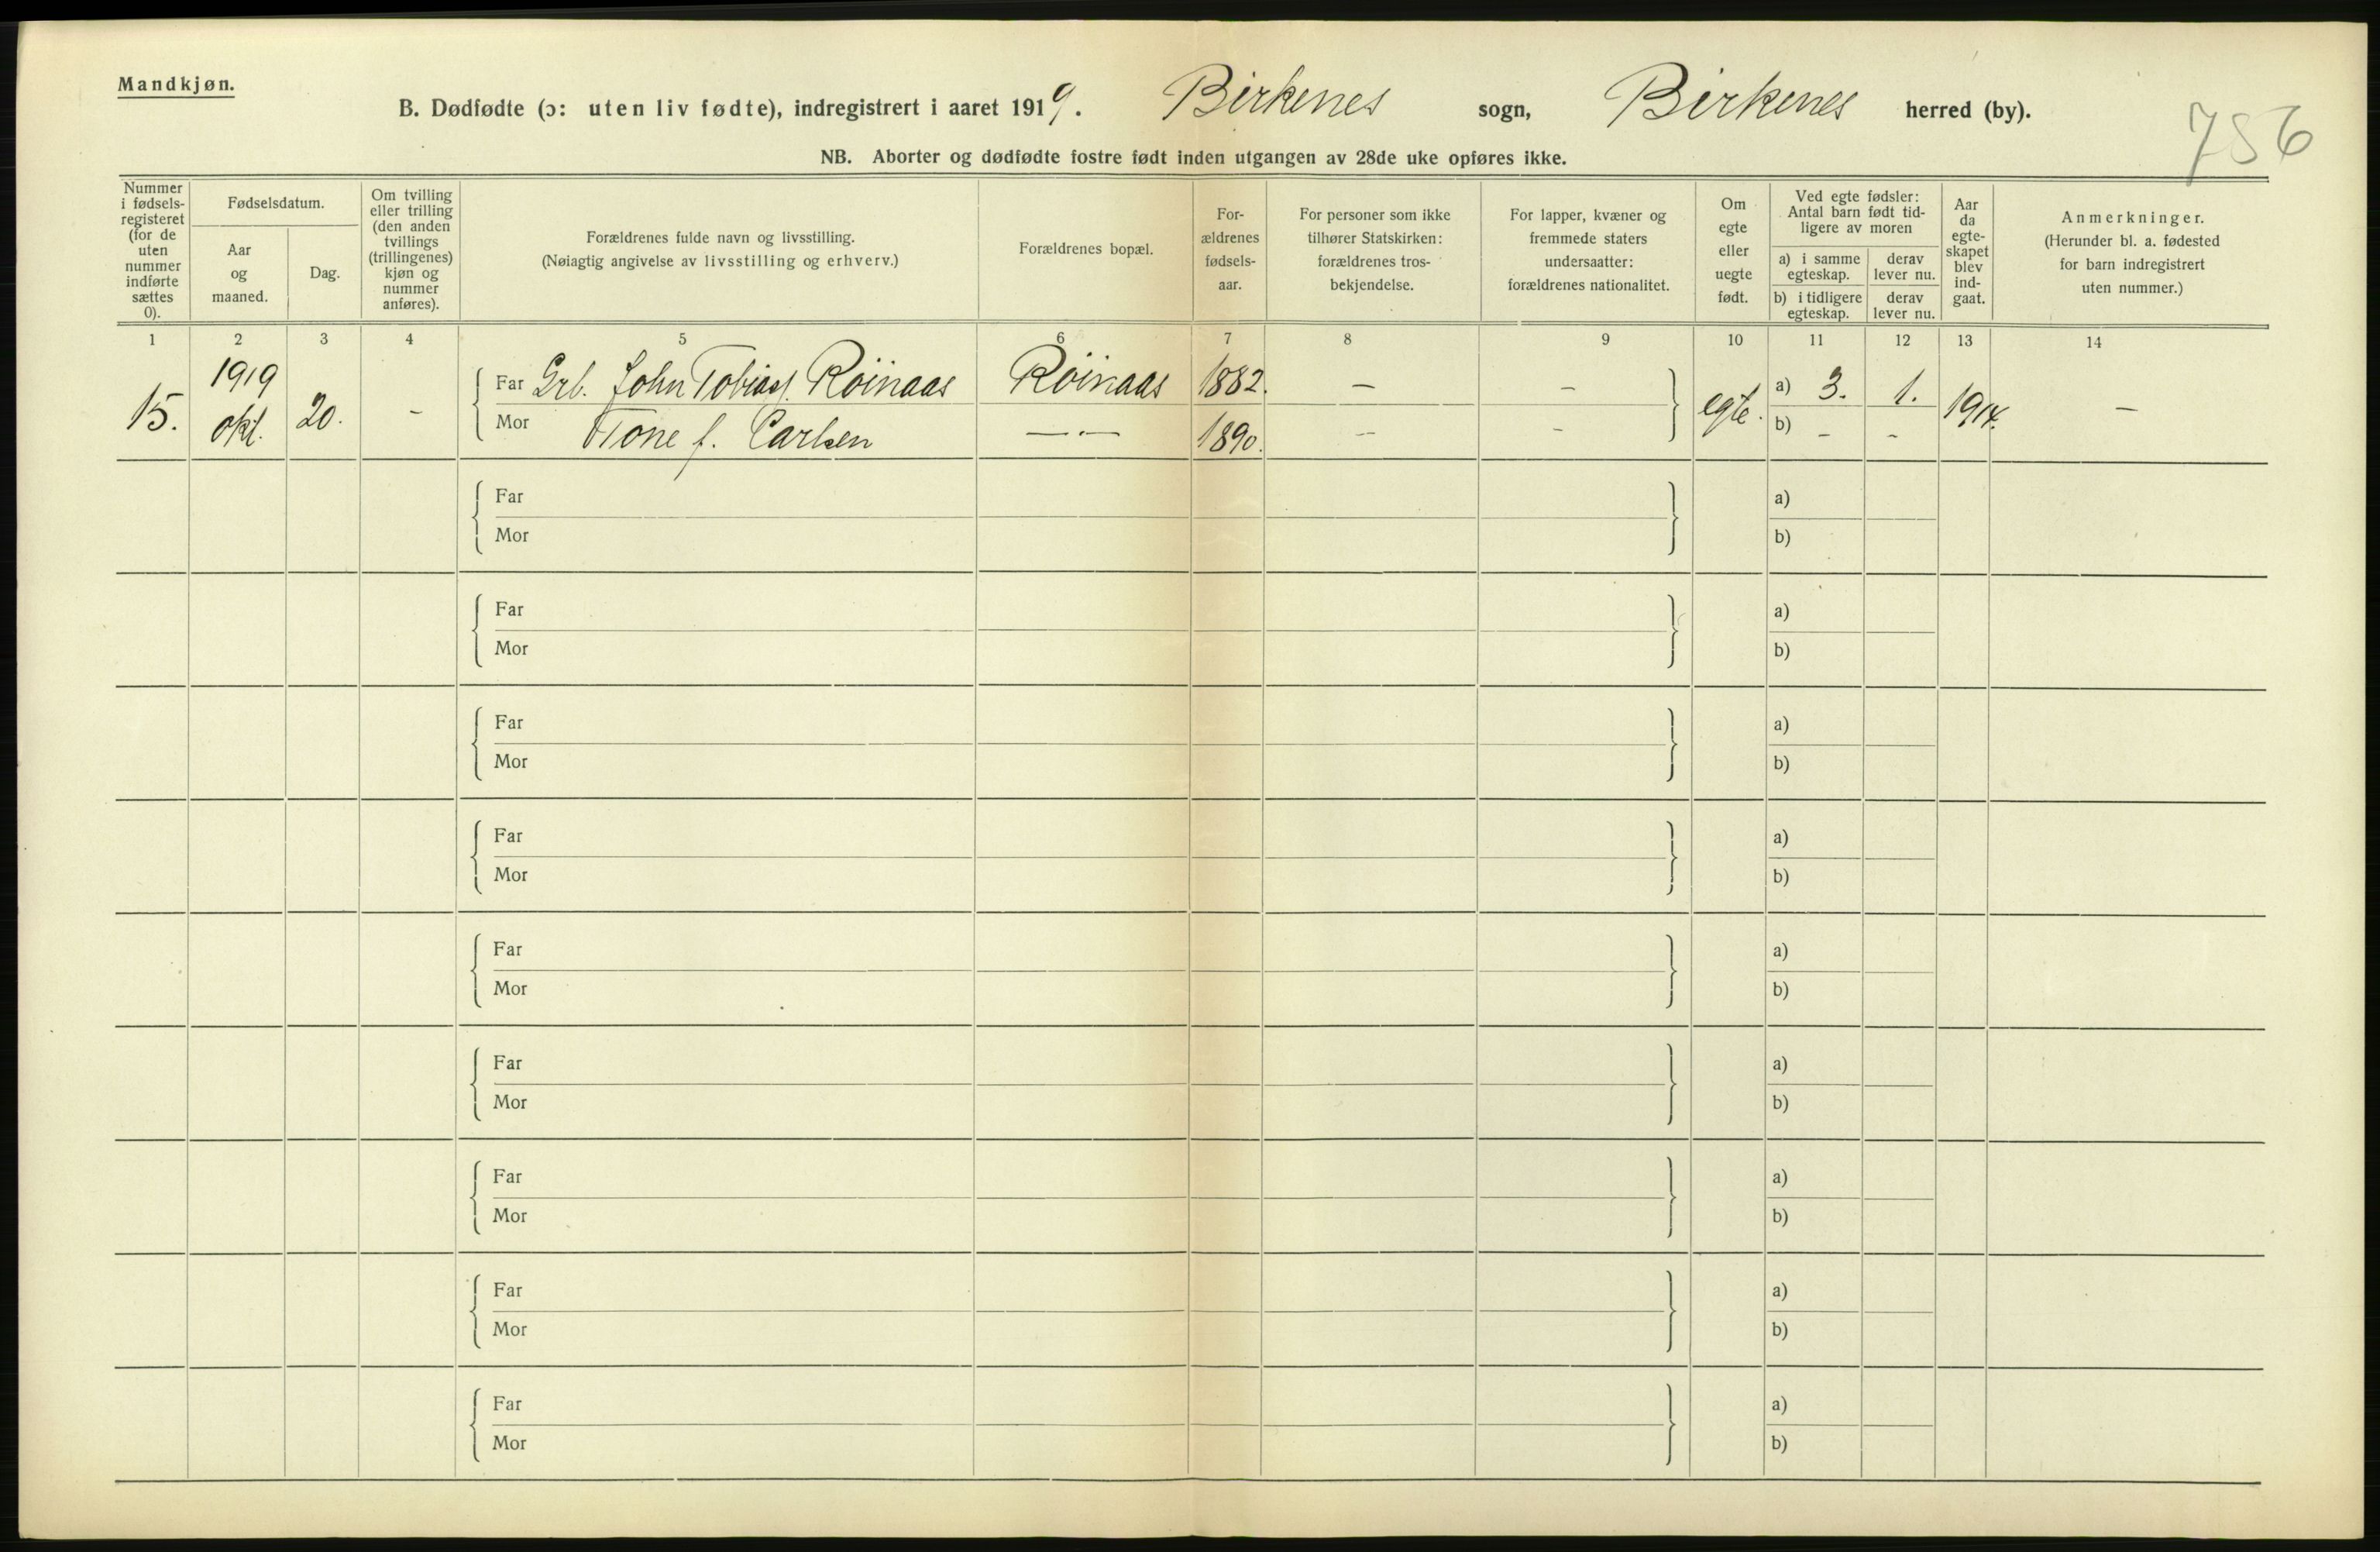 Mandkjøn.
B. Dødfødte (ɔ: uten liv fødte), indregistrert i aaret 1919. Birkenes sogn, Birkenes herred (by).
756
NB. Aborter og dødfødte fostre født inden utgangen av 28de uke opføres ikke.
Nummer
i fødsels-
registeret
(for de
uten
nummer
indførte
sættes
0).
Fødselsdatum.
Aar
og
maaned.
Dag.
Om tvilling
eller trilling
(den anden
tvillings
(trillingenes)
kjøn og
nummer
anføres).
Forældrenes fulde navn og livsstilling.
(Nøiagtig angivelse av livsstilling og erhverv.)
Forældrenes bopæl.
For-
ældrenes
fødsels-
aar.
For personer som ikke
tilhører Statskirken:
forældrenes tros-
bekjendelse.
For lapper, kvæner og
fremmede staters
undersaatter:
forældrenes nationalitet.
Om
egte
eller
uegte
født.
Ved egte fødsler:
Antal barn født tid-
ligere av moren
a) i samme
egteskap.
derav
lever nu.
b) i tidligere
egteskap.
derav
lever nu.
Aar
da
egte-
skapet
blev
ind-
gaat.
Anmerkninger.
(Herunder bl. a. fødested
for barn indregistrert
uten nummer.)
1 2 3 4 5 6 7 8 9 10 11 12 13 14
15. 1919 okt. 20. -
Far Grb. John Tobiass. Röinaas Röinaas 1882. - - egte. a) 3. 1. 1914. -
Mor Tone f. Carlsen -"- 1890. - - b) - -
Far a)
Mor b)
Far a)
Mor b)
Far a)
Mor b)
Far a)
Mor b)
Far a)
Mor b)
Far a)
Mor b)
Far a)
Mor b)
Far a)
Mor b)
Far a)
Mor b)